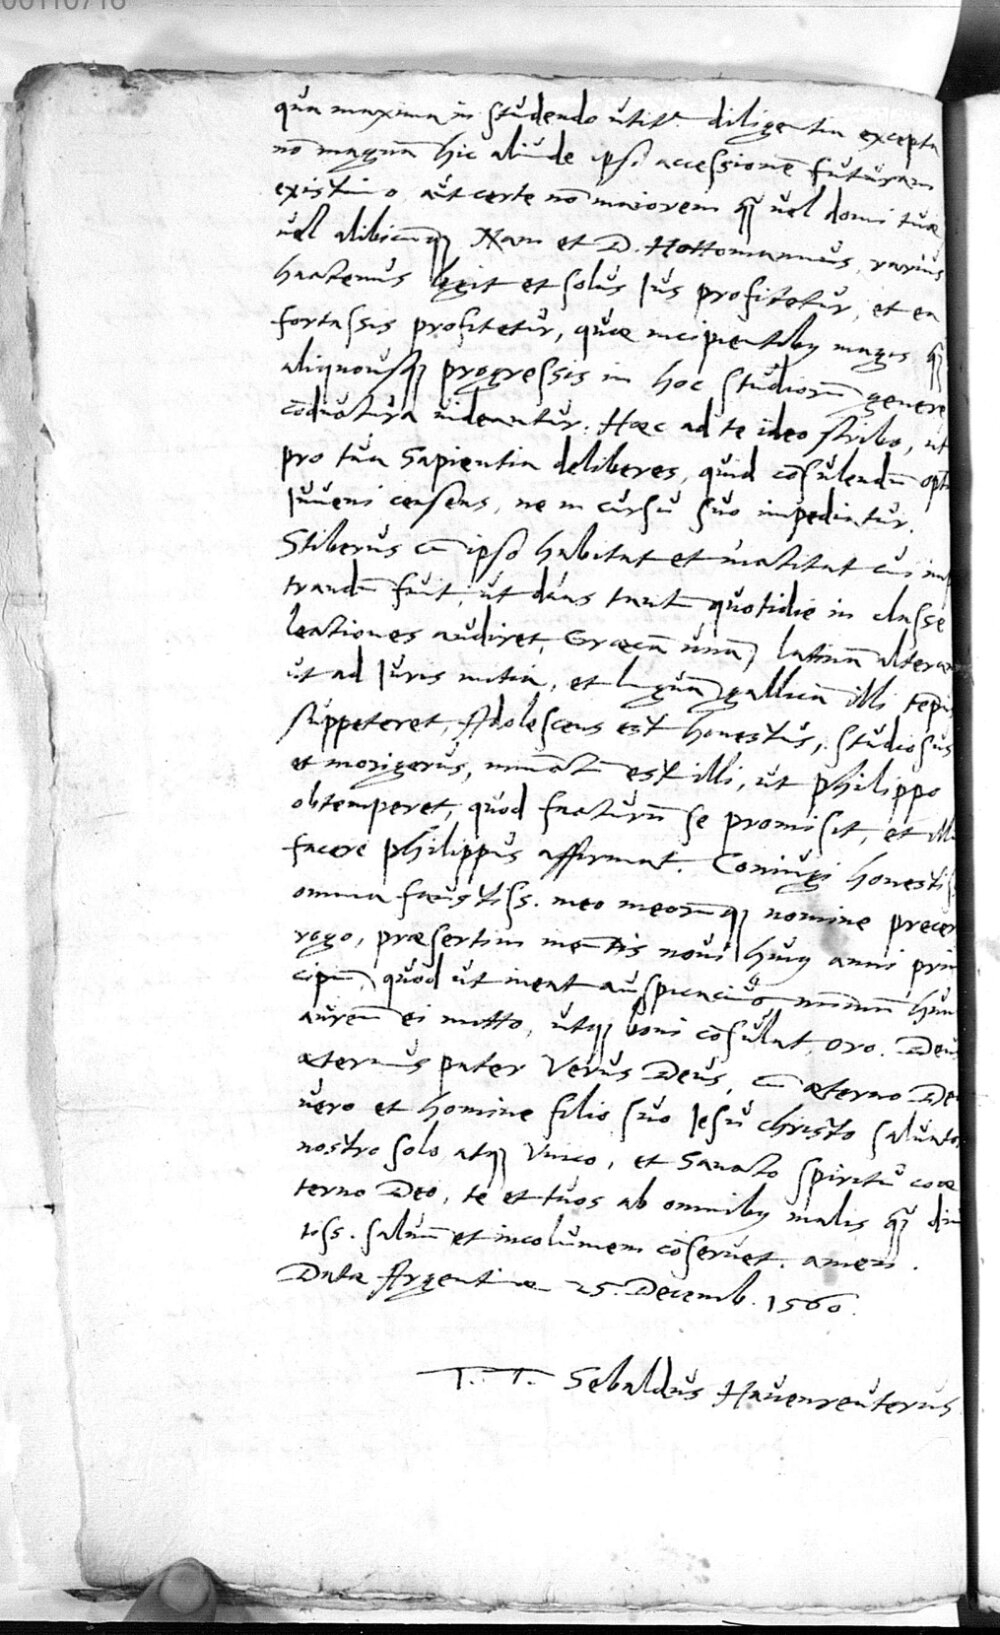 qua maxima in studendo utitr. diligentia excepta
nō magnā hic aliūde ipsi accessionē futuram
existimo aut certe nō maiorem qꝫ uel domi tuæ
uel alibicūqꝫ Nam et D. Hottomannus, rarius
hactenus legit et solus Jus profitetur, et ea
fortassis profitetur, quæ incipientibꝰ magis qꝫ
aliquousqꝫ progressis in hoc studiorū genere
cōductura uideantur. Hæc ad te ideo scribo, ut
pro tua Sapientia deliberes, quid cōsulendū opt
Juueni censeas, ne in cursu suo impediatur.
Stiberus cū ipso habitat et uictitat cui im
trandū fuit, ut duas tantū quotidie in classe
lectiones audiret, Græcā unā, latinā alteram
ut ad Juris initia, et linguā gallicā illi tēpus
suppeteret, Adolescens est honestus, studiosus
et morigerus, iniūctū est illi, ut philippo
obtemperet, quod facturū se promisit, et illū
facere philippus affirmat. Coniugi honestiss
omnia faustiss. meo meorūqꝫ nomine precer
rogo, præsertim ineūtis noui huiꝰ anni prin
cipiū, quod ut ineat auspicaciꝰ nūmū hunc
aureū ei mitto, utqꝫ boni cōsulat, oro. Deus
æternus pater Verus Deus, cū æterno Deo
uero et homine filio suo Jesu christo saluatore
nostro solo atqꝫ Vnico, et Sancto spiritu coæ
terno Deo, te et tuos ab omnibꝰ malis qꝫ diu
tiss. saluū et incolumem cōseruet. amen.
Datæ Argentinæ 25. Decemb. 1560.
T. T. Sebaldus Hauenreuterus